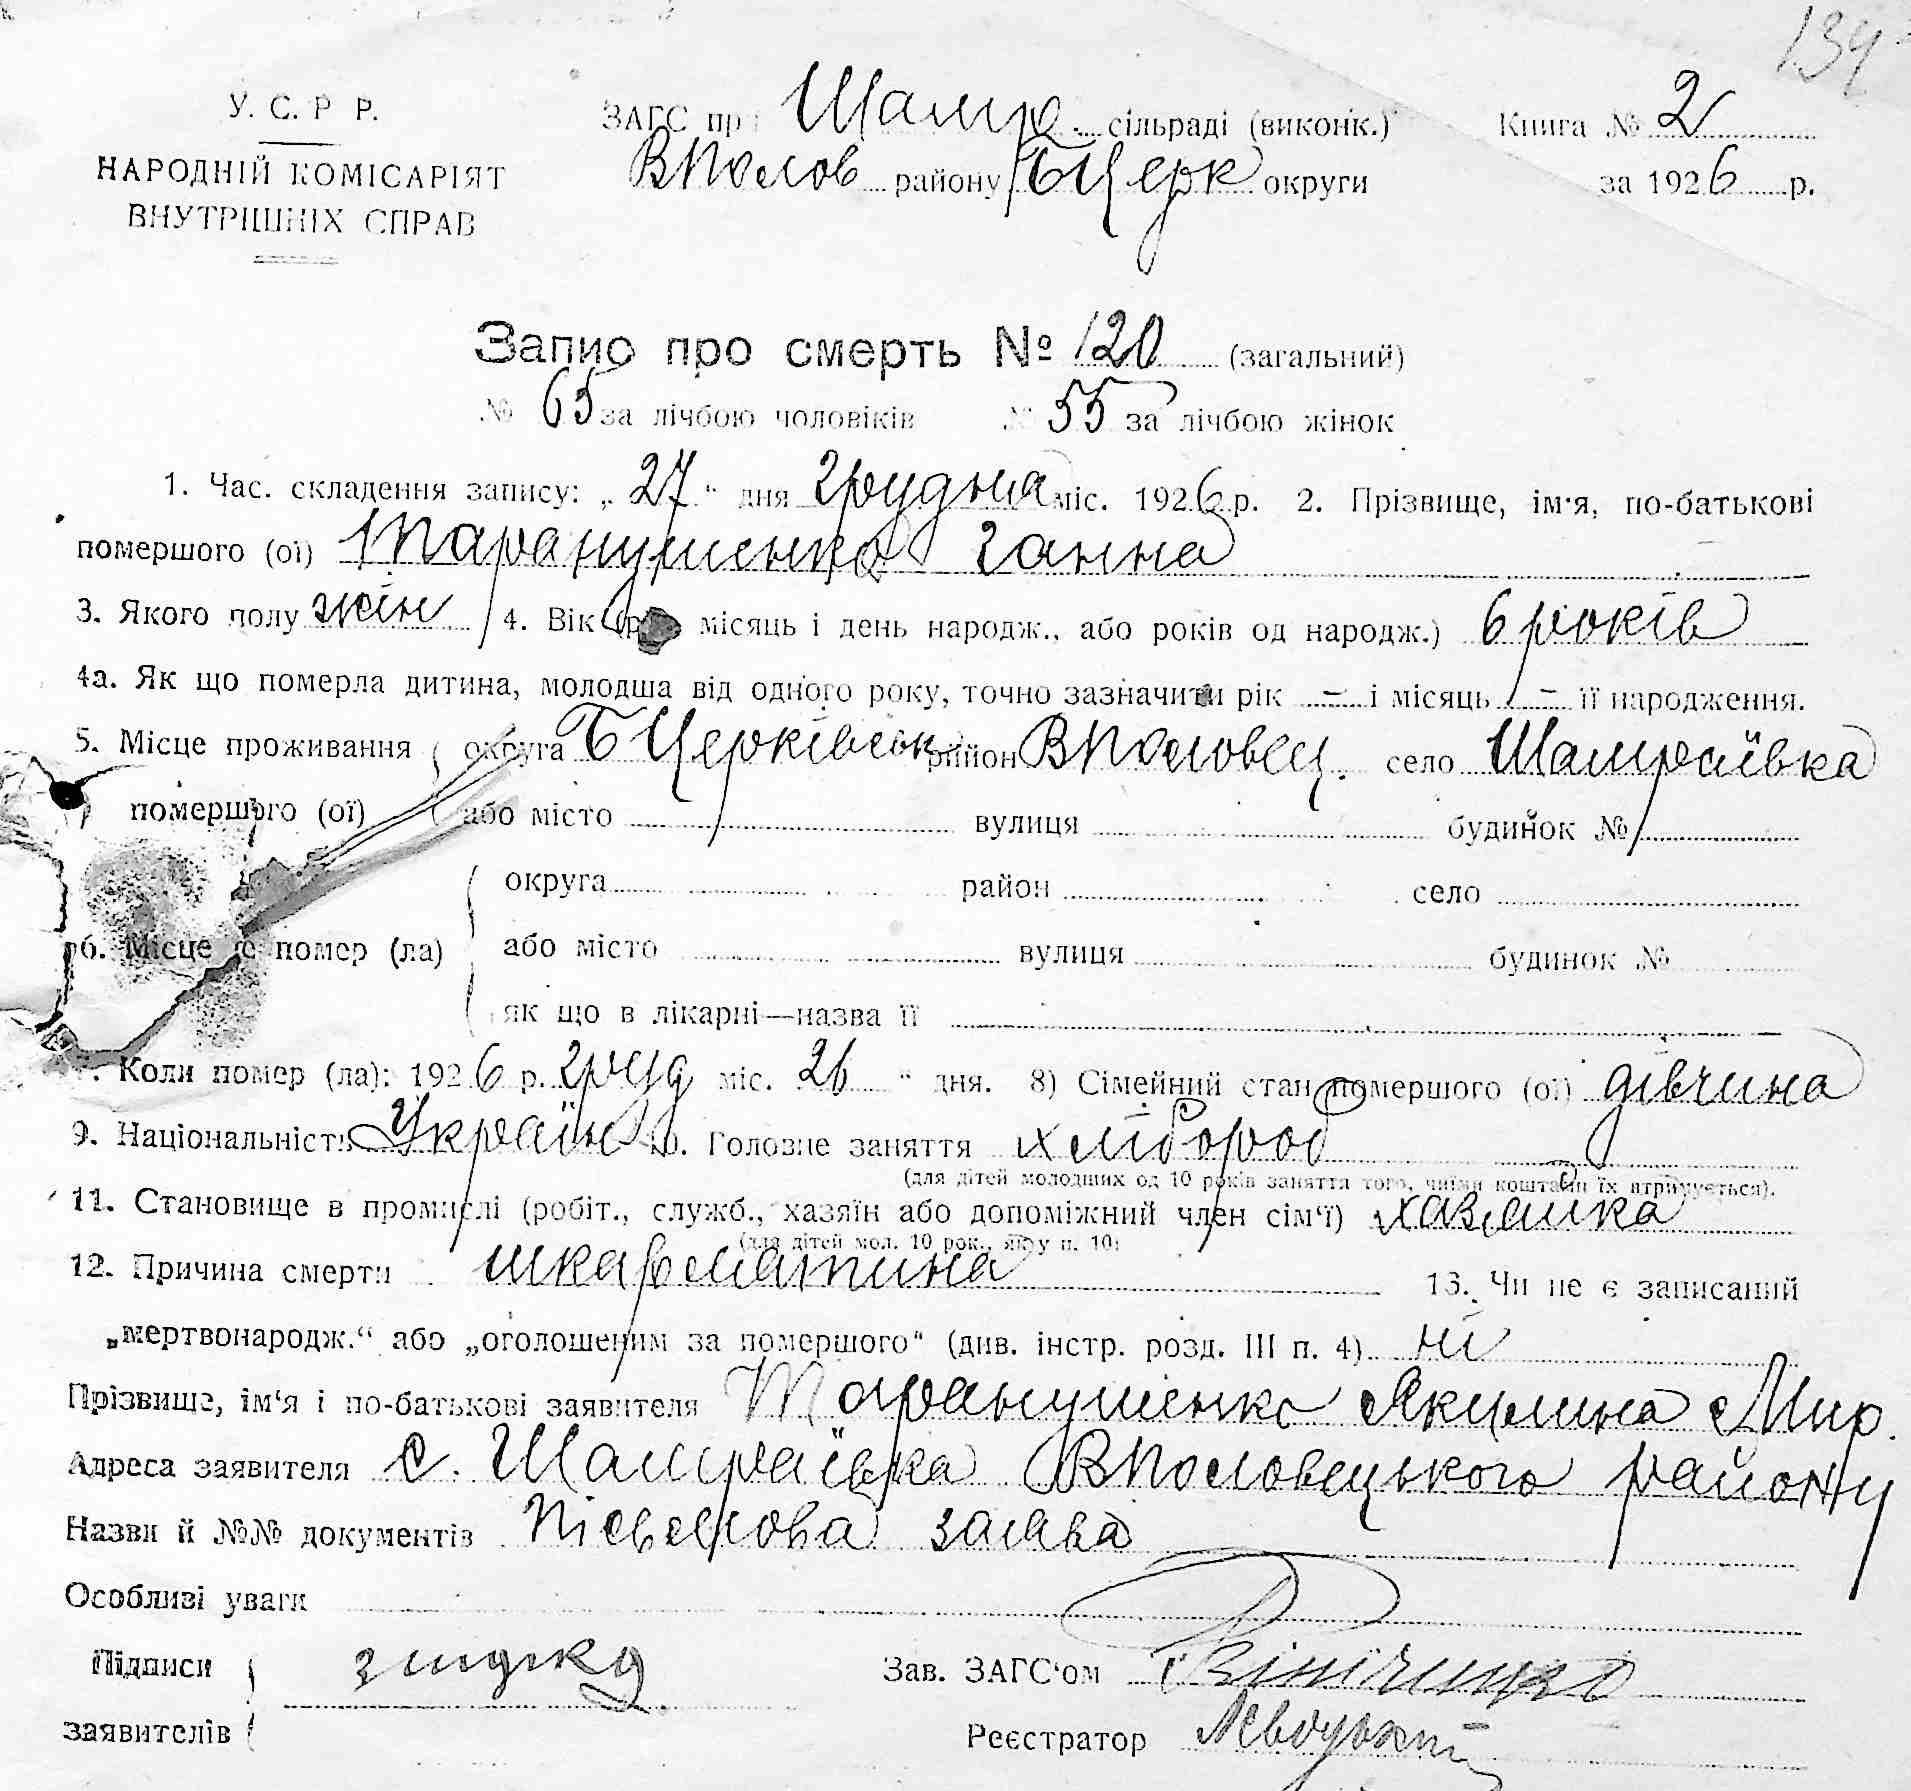 134
У. С. Р Р.
НАРОДНІЙ КОМІСАРІЯТ
ВНУТРІШНІХ СПРАВ
ЗАГС при Шамр. сільраді (виконк.)
ВПолов району БЦерк округи
Книга № 2
за 1926 р.
Запис про смерть № 120 (загальний)
№ 65 за лічбою чоловіків № 55 за лічбою жінок
1. Час. складення запису: „27“ дня грудня міс. 1926 р. 2. Прізвище, ім'я, по-батькові
помершого (ої) Таранушенко Ганна
3. Якого полу жін 4. Вік (рік місяць і день народж., або років од народж.) 6 років
4а. Як що померла дитина, молодша від одного року, точно зазначити рік – і місяць – її народження.
5. Місце проживання округа БЦерківськ район ВПоловец. село Шамраївка
помершого (ої) або місто вулиця будинок №
округа район село
6. Місце де помер (ла) або місто вулиця будинок №
як що в лікарні—назва її
Коли помер (ла): 1926 р. груд міс. 26 “ дня. 8) Сімейний стан помершого (ої) дівчина
9. Національність Україн 10. Головне заняття хлібороб
(для дітей молодших од 10 років заняття того, чиїми коштами їх утримується).
11. Становище в промислі (робіт., служб., хазяїн або допоміжний член сім'ї) хазяйка
(для дітей мол. 10 рок., як у п. 10)
12. Причина смерти шкарлатина 13. Чи не є записаний
„мертвонародж.“ або „оголошеним за помершого“ (див. інстр. розд. III п. 4) ні
Прізвище, ім'я і по-батькові заявителя Таранушенко Якилина Мир.
Адреса заявителя с. Шамраївка ВПоловецького району
Назви й №№ документів Пісьмова заява
Особливі уваги
Підписи
заявителів
Зав. ЗАГС'ом
Реєстратор